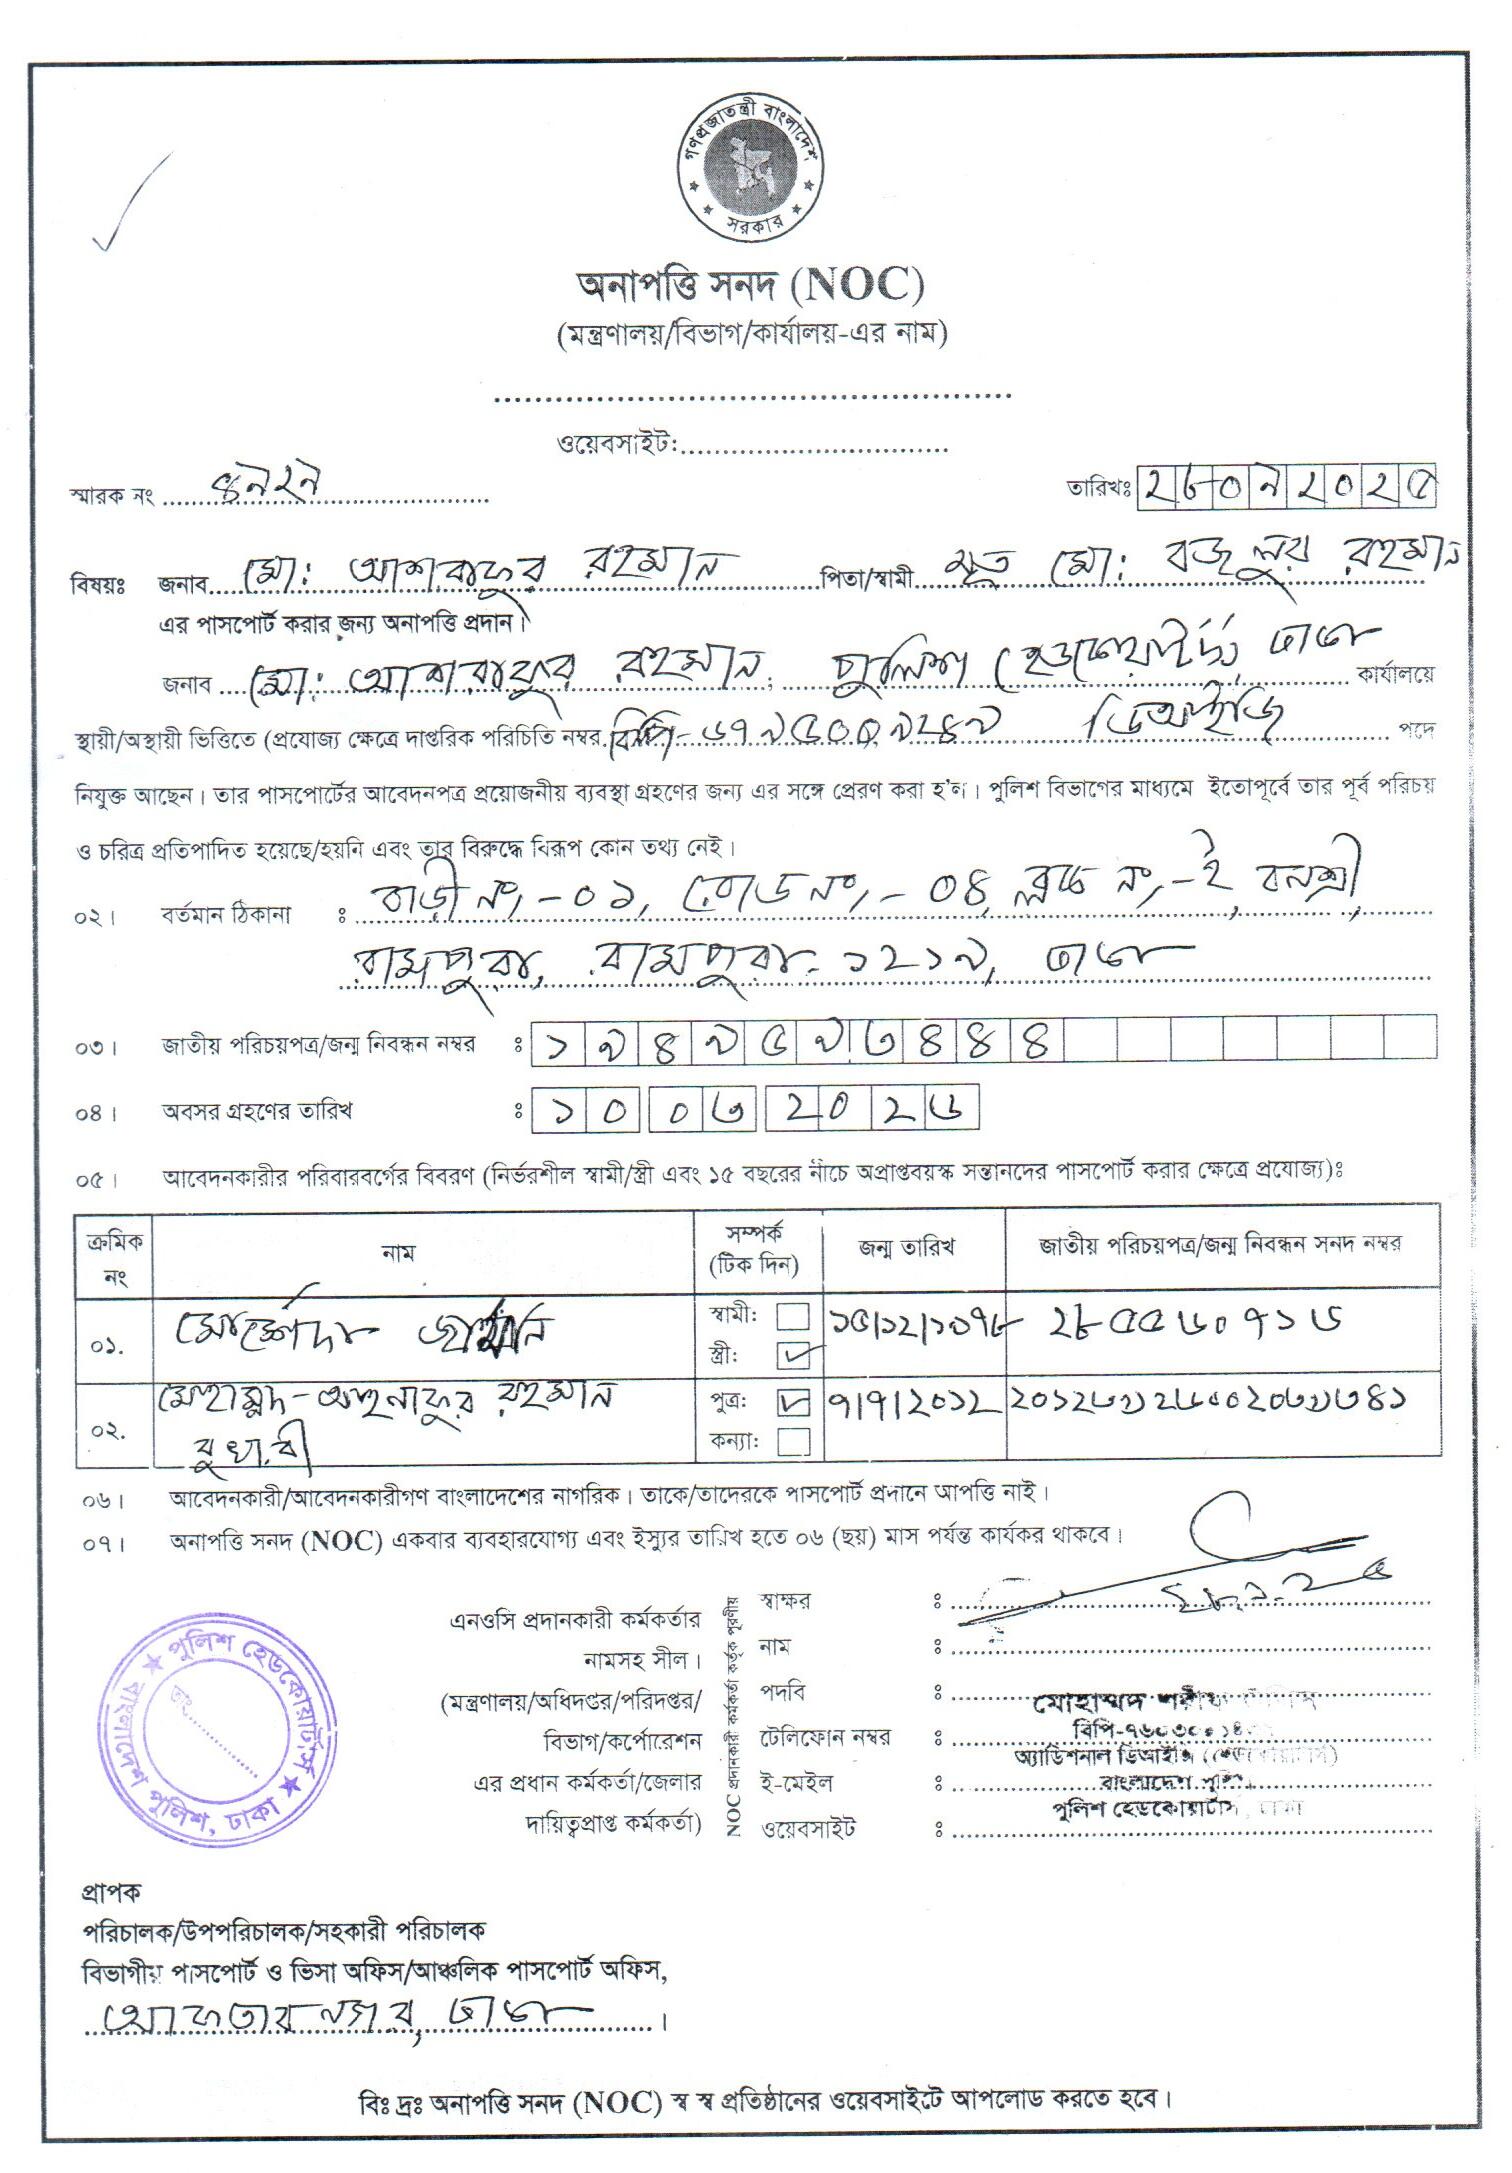 গণপ্রজাতন্ত্রী বাংলাদেশ
সরকার
অনাপত্তি সনদ (NOC)
(মন্ত্রণালয়/বিভাগ/কার্যালয়-এর নাম)
ওয়েবসাইট:
স্মারক নং
তারিখঃ ২৮০৯২০২৫
বিষয়ঃ জনাব মো: আশরাফুর রহমান পিতা/স্বামী মৃত মো: বজলুর রহমান
এর পাসপোর্ট করার জন্য অনাপত্তি প্রদান।
জনাব মো: আশরাফুর রহমান, পুলিশ হেডকোয়ার্টার্স, ঢাকা কার্যালয়ে
স্থায়ী/অস্থায়ী ভিত্তিতে (প্রযোজ্য ক্ষেত্রে দাপ্তরিক পরিচিতি নম্বর ডিআইজি পদে
নিযুক্ত আছেন। তার পাসপোর্টের আবেদনপত্র প্রয়োজনীয় ব্যবস্থা গ্রহণের জন্য এর সঙ্গে প্রেরণ করা হ'ল। পুলিশ বিভাগের মাধ্যমে ইতোপূর্বে তার পূর্ব পরিচয়
ও চরিত্র প্রতিপাদিত হয়েছে/হয়নি এবং তার বিরুদ্ধে বিরূপ কোন তথ্য নেই।
০২। বর্তমান ঠিকানা : বাড়ী নং-০১, রোড নং-০৪, ব্লক নং-ই, বনশ্রী,
রামপুরা, রামপুরা-১২১৯, ঢাকা
০৩। জাতীয় পরিচয়পত্র/জন্ম নিবন্ধন নম্বর : ১৯৪৯৫৯৩৪৪৪
০৪। অবসর গ্রহণের তারিখ : ১০ ০৩ ২০ ২৬
০৫। আবেদনকারীর পরিবারবর্গের বিবরণ (নির্ভরশীল স্বামী/স্ত্রী এবং ১৫ বছরের নীচে অপ্রাপ্তবয়স্ক সন্তানদের পাসপোর্ট করার ক্ষেত্রে প্রযোজ্য)ঃ
ক্রমিক নং নাম সম্পর্ক (টিক দিন) জন্ম তারিখ জাতীয় পরিচয়পত্র/জন্ম নিবন্ধন সনদ নম্বর
০১. স্বামী:
স্ত্রী: ✓
০২. রহমান পুত্র: ✓ ৭/৭/২০১২
কন্যা:
০৬। আবেদনকারী/আবেদনকারীগণ বাংলাদেশের নাগরিক। তাকে/তাদেরকে পাসপোর্ট প্রদানে আপত্তি নাই।
০৭। অনাপত্তি সনদ (NOC) একবার ব্যবহারযোগ্য এবং ইস্যুর তারিখ হতে ০৬ (ছয়) মাস পর্যন্ত কার্যকর থাকবে।
এনওসি প্রদানকারী কর্মকর্তার
নামসহ সীল।
(মন্ত্রণালয়/অধিদপ্তর/পরিদপ্তর/
বিভাগ/কর্পোরেশন
এর প্রধান কর্মকর্তা/জেলার
দায়িত্বপ্রাপ্ত কর্মকর্তা)
NOC প্রদানকারী কর্মকর্তা কর্তৃক পূরণীয়
স্বাক্ষর :
নাম :
পদবি :
টেলিফোন নম্বর :
ই-মেইল :
ওয়েবসাইট :
মোহাম্মদ
অ্যাডিশনাল ডিআইজি
বাংলাদেশ পুলিশ
পুলিশ হেডকোয়ার্টার্স, ঢাকা
★ পুলিশ হেডকোয়ার্টার্স ★
বাংলাদেশ পুলিশ, ঢাকা
তাং
প্রাপক
পরিচালক/উপপরিচালক/সহকারী পরিচালক
বিভাগীয় পাসপোর্ট ও ভিসা অফিস/আঞ্চলিক পাসপোর্ট অফিস,
আফতাবনগর, ঢাকা।
বিঃ দ্রঃ অনাপত্তি সনদ (NOC) স্ব স্ব প্রতিষ্ঠানের ওয়েবসাইটে আপলোড করতে হবে।